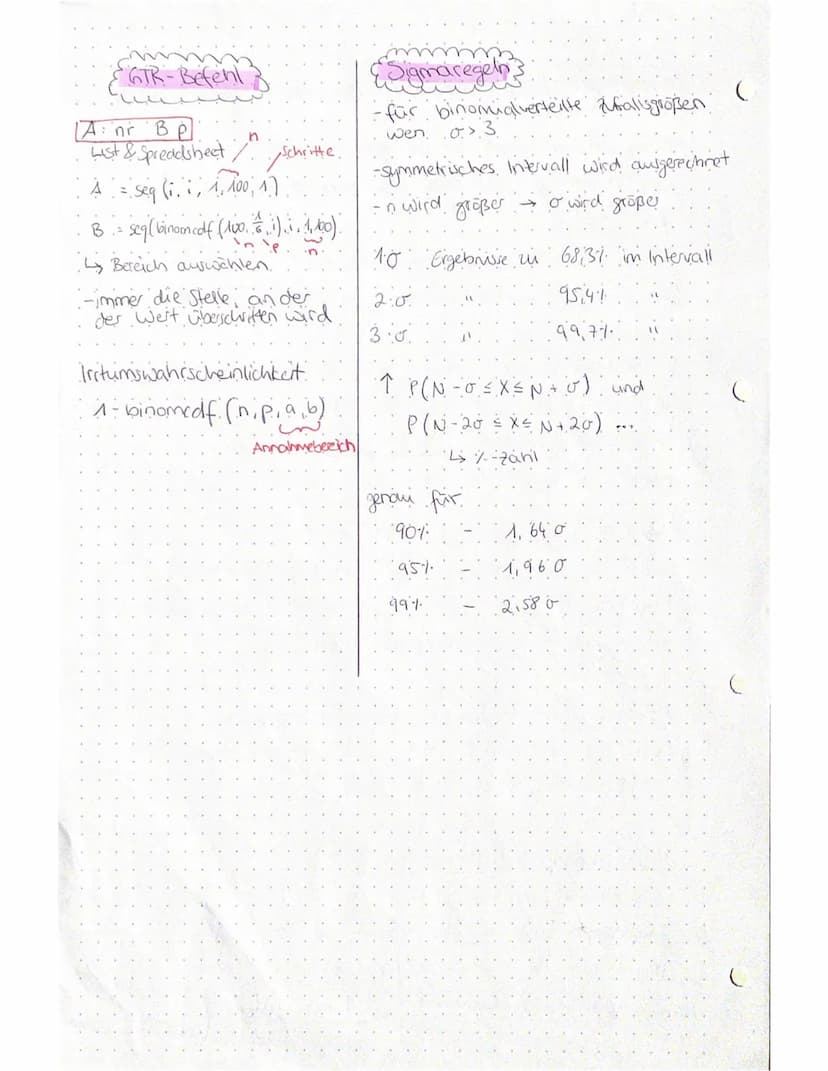 GTR-Befehl
A: nr B p
List & Spreadsheet
n
Schritte
A := seq(i, i, 1, 100, 1)
B := seq(binomcdf(100, 1/6, i), i, 1, 100)
n p n
↳ Bereich auswählen
- immer die Stelle, an der
der Wert überschritten wird
Irrtumswahrscheinlichkeit
1 - binomcdf (n, p, a, b)
Annahmebereich
Sigmaregeln
- für binomialverteilte Zufallsgrößen
wen σ > 3
- symmetrisches Intervall wird ausgerechnet
- n wird größer → σ wird größer
1σ Ergebnisse zu 68,3% im Intervall
2σ " 95,4% "
3σ " 99,7% "
↑ P(N - σ ≤ X ≤ N + σ) und
P(N - 2σ ≤ X ≤ N + 2σ) ...
↳ %-Zahl
genau für
90% - 1,64 σ
95% - 1,96 σ
99% - 2,58 σ